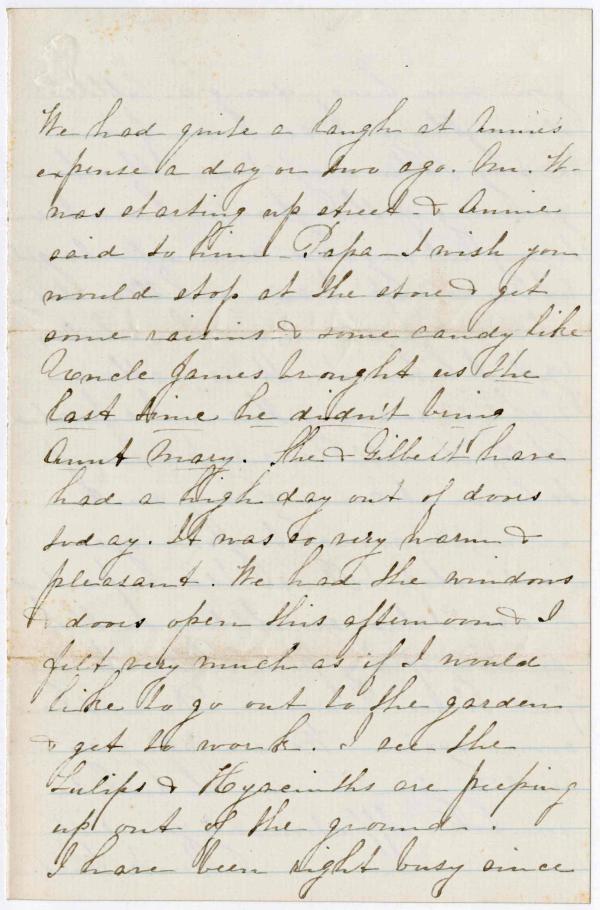 We had quite a laugh at Annie's
expense a day or two ago. Mr. W-
was starting up street - & Annie
said to him - Papa - I wish you
would stop at the store & get
some raisins - & some candy like
Uncle James brought us the
last time he didn't bring
Aunt Mary. She & Gilbert have
had a high day out of doors
today. It was so very warm &
pleasant. We had the windows
& doors open this afternoon & I
felt very much as if I would
like to go out to the garden
& get to work. I see the
Tulips & Hyacinths are peeping
up out of the ground.
I have been right busy since